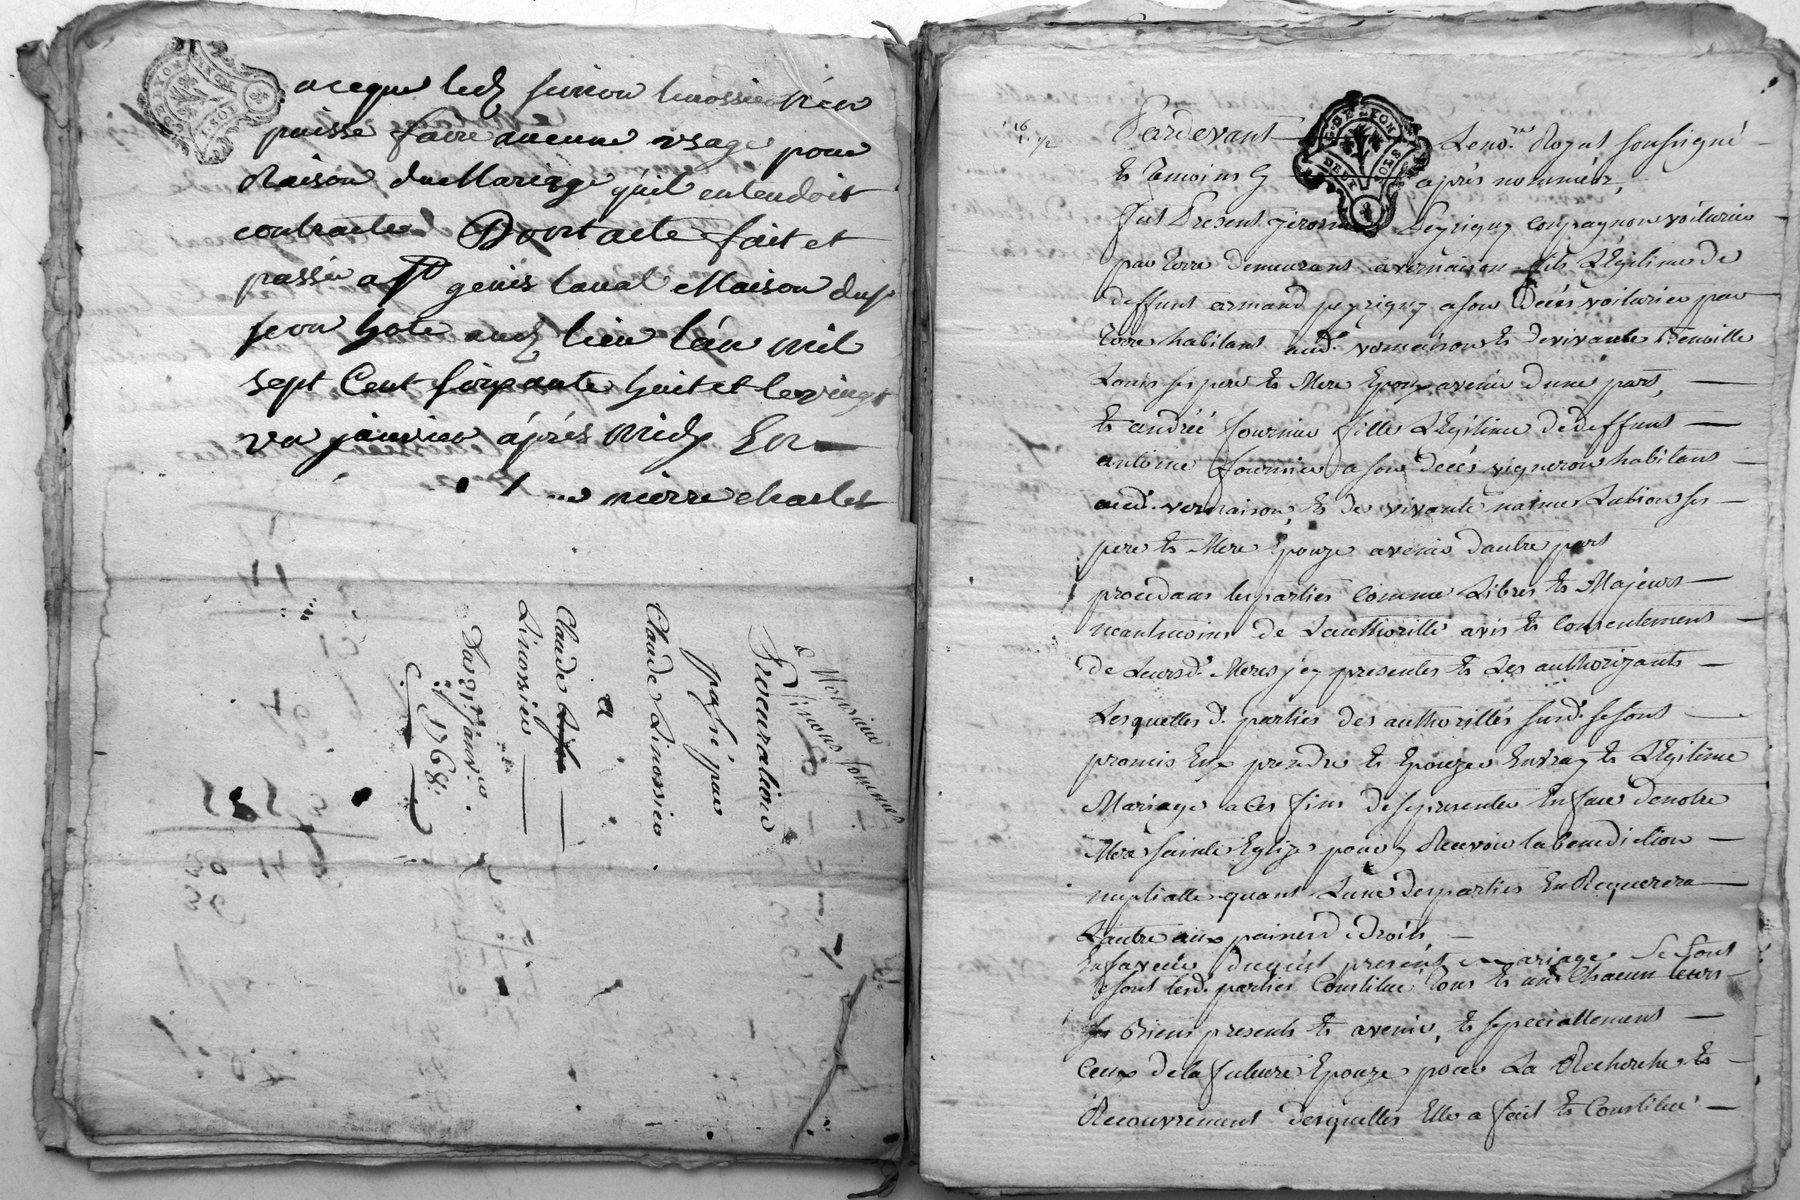 aceque led. simeon linossier n'en
puisse faire aucune usage pour
Raison du Mariage qu'il entendoit
contracter Dont acte fait et
passée a St genis laval Maison du sr
jeon hote aud. lieu l'an mil
sept Cent soixante huit et le vingt
un janvier aprés midy En
pierre charles
a Monsieur
Simons sommes
Procuration
passé par
Claude Linossier
a
Claude
Linossier
Du 21 janv.er
1768.
G. DE LYON
DEUX SOLS
Pardevant Le no.re Royal soussigné
et Temoins après nommés,
fut Present jerosme Peyrigny compagnon voiturier
par terre demeurant a vernaison fils Legitime de
deffunt armand peyrigny a son Décés voiturier par
terre habitant aud. vernaison et de vivante Benoitte
Louis ses pere et Mere Epoux avenir d'une part,
et andréé fournier fille Légitime de deffunt
antoine fournier a son decés vigneron habitant
aud. vernaison, et de vivante ses
pere et Mere Epouze avenir d'autre part
procedans les parties comme Libres et Majeurs
neantmoins de L'authorité avis et consentement
de Leursd. Meres jcy presentes et Les authorizants
Lesquelles d. parties des authorittés susd. se sont
promis Eux prendre et Epouzer En vray et Legitime
Mariage a ces fins de se presenter En face de notre
Mere sainte Eglize pour y Recevoir la benediction
nuptialle quant L'une des parties En Requerera
L'autre aux peines de droits
En faveur duquel present mariage Se sont
se sont lesd. parties Constitué tous et un Chacun leurs
Biens presents et avenir, et speciallement
Ceux de la future Epouze pour La Recherche et
Recouvrement desquelles Elle a fait et Constitué